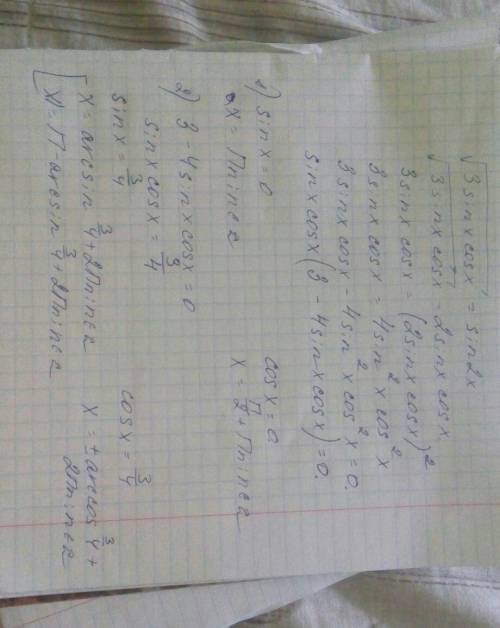 √3sinxcosx = sin2x
√3sinxcosx = 2sinxcosx
3sinxcosx = (2sinxcosx)²
3sinxcosx = 4sin²xcos²x
3sinxcosx - 4sin²xcos²x = 0.
sinxcosx(3 - 4sinxcosx) = 0.
1) sinx = 0 cosx = 0
x = Пn; n∈z x = П/2 + Пn; n∈z
2) 3 - 4sinxcosx = 0
sinxcosx = 3/4
sinx = 3/4 cosx = 3/4
[ x = arcsin 3/4 + 2Пn; n∈z x = ± arccos 3/4 +
x = П - arcsin 3/4 + 2Пn; n∈z 2Пn; n∈z